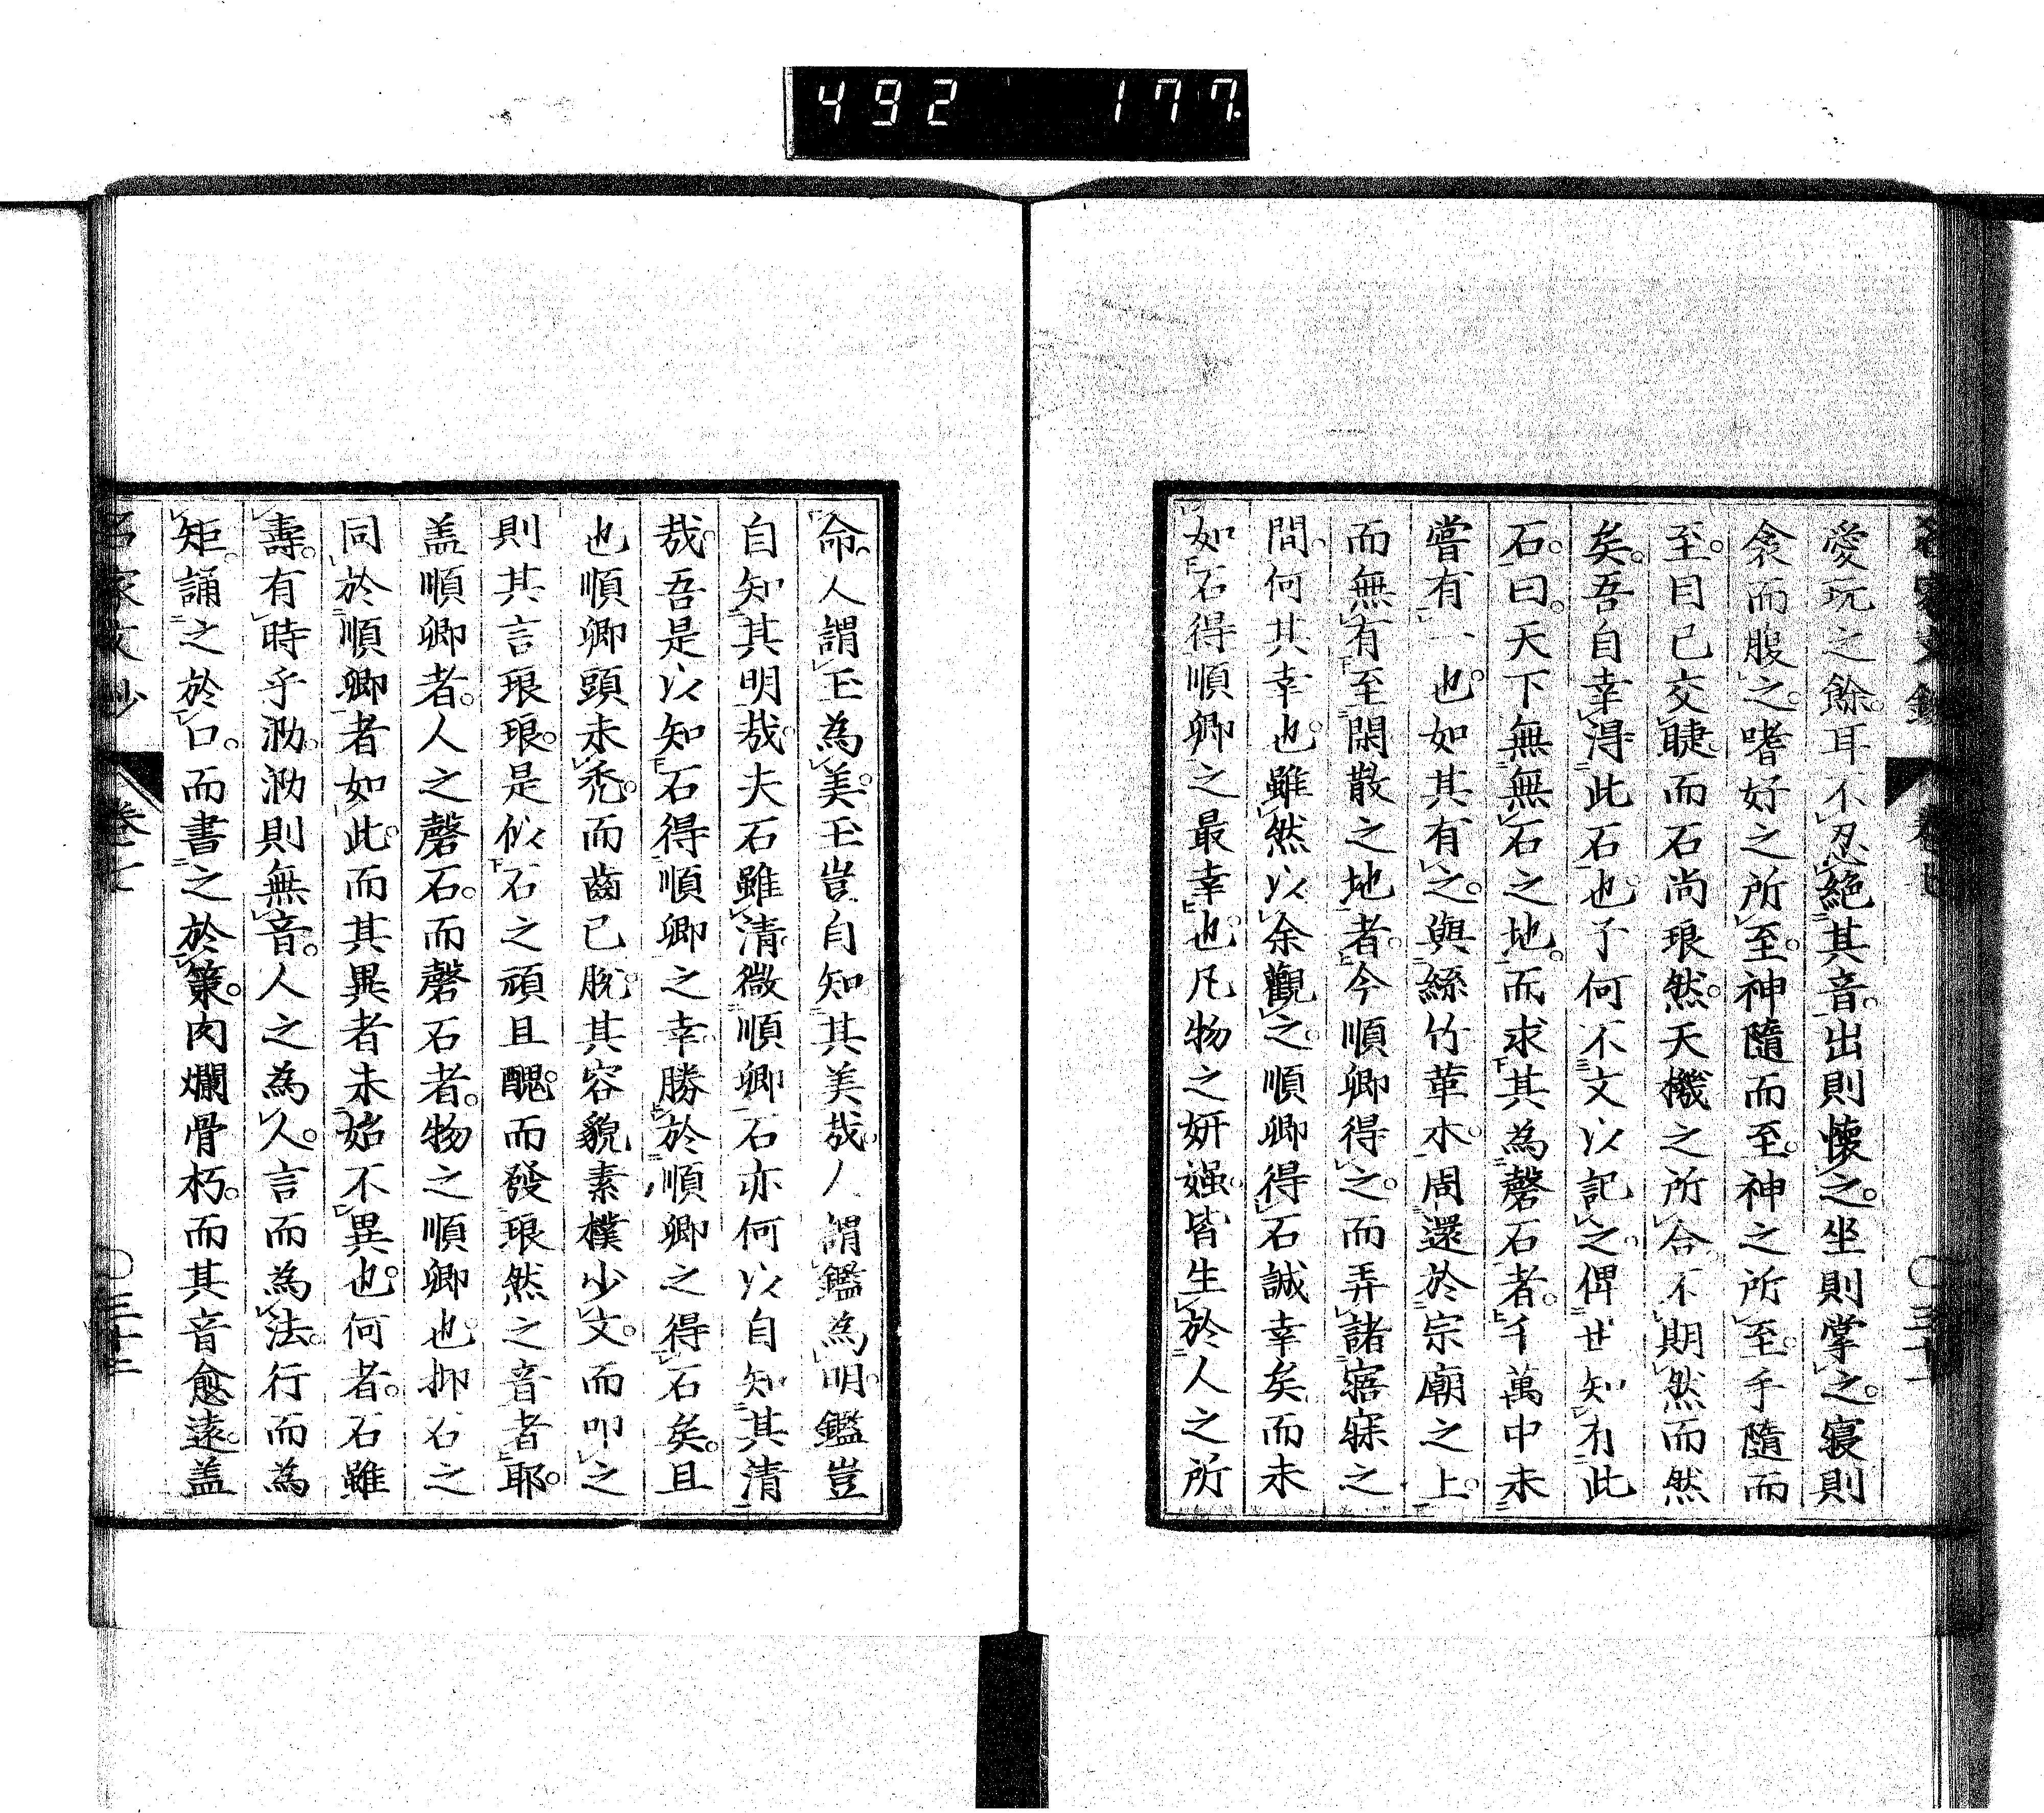 492 177.
愛玩之餘。耳不忍絕其音。出則懷之。坐則掌之。寝則
衾而腹之。嗜好之所至。神隨而至。神之所至。手隨而
至。目已交睫。而石尚琅然。天機之所合。不期然而然
矣。吾自幸得此石也。予何不文以記之。俾世知有此
石。曰。天下無無石之地。而求其為磬石者。千萬中未
嘗有一也。如其有之。與絲竹革木。周還於宗廟之上。
而無有至閑散之地者。今順卿得之。而弄諸寤寐之
間。何其幸也。雖然以余觀之。順卿得石誠幸矣而未
如石得順卿之最幸也。凡物之妍媸。皆生於人之所
命。人謂玉為美。玉豈自知其美哉。人謂鑑為明。鑑豈
自知其明哉。夫石雖清。微順卿石亦何以自知其清
哉。吾是以知石得順卿之幸。勝於順卿之得石矣。且
也順卿頭未禿。而齒已脫。其容貌素樸少文。而叩之
則其言琅琅。是似石之頑且醜。而發琅然之音者耶。
盖順卿者。人之磬石。而磬石者。物之順卿也。抑石之
同於順卿者如此。而其異者未始不異也。何者。石雖
壽。有時乎泐。泐則無音。人之為人。言而為法。行而為
矩。誦之於口。而書之於策。肉爛骨朽。而其音愈遠。盖
名家文鈔 卷七 〇三十二